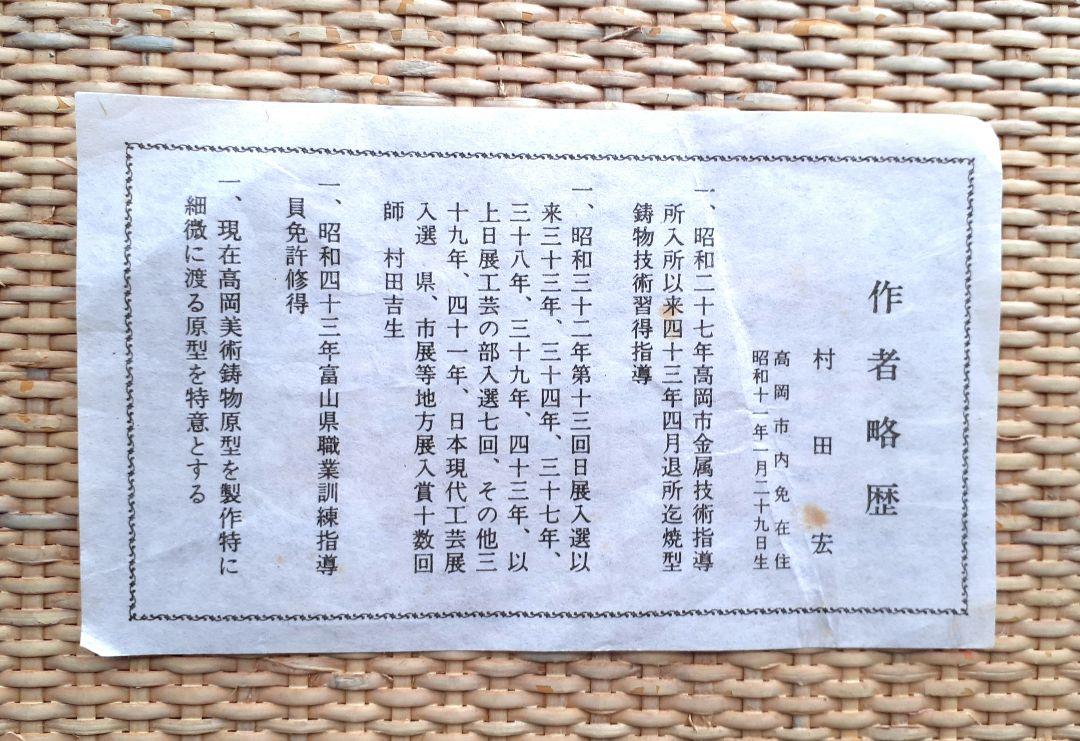 作者略歴
村田宏
高岡市内免在住
昭和十一年一月二十九日生
一、昭和二十七年高岡市金属技術指導
所入所以来四十三年四月退所迄焼型
鋳物技術習得指導
一、昭和三十二年第十三回日展入選以
来三十三年、三十四年、三十七年、
三十八年、三十九年、四十三年、以
上日展工芸の部入選七回、その他三
十九年、四十一年、日本現代工芸展
入選　県、市展等地方展入賞十数回
師　村田吉生
一、昭和四十三年富山県職業訓練指導
員免許修得
一、現在高岡美術鋳物原型を製作特に
細微に渡る原型を特意とする